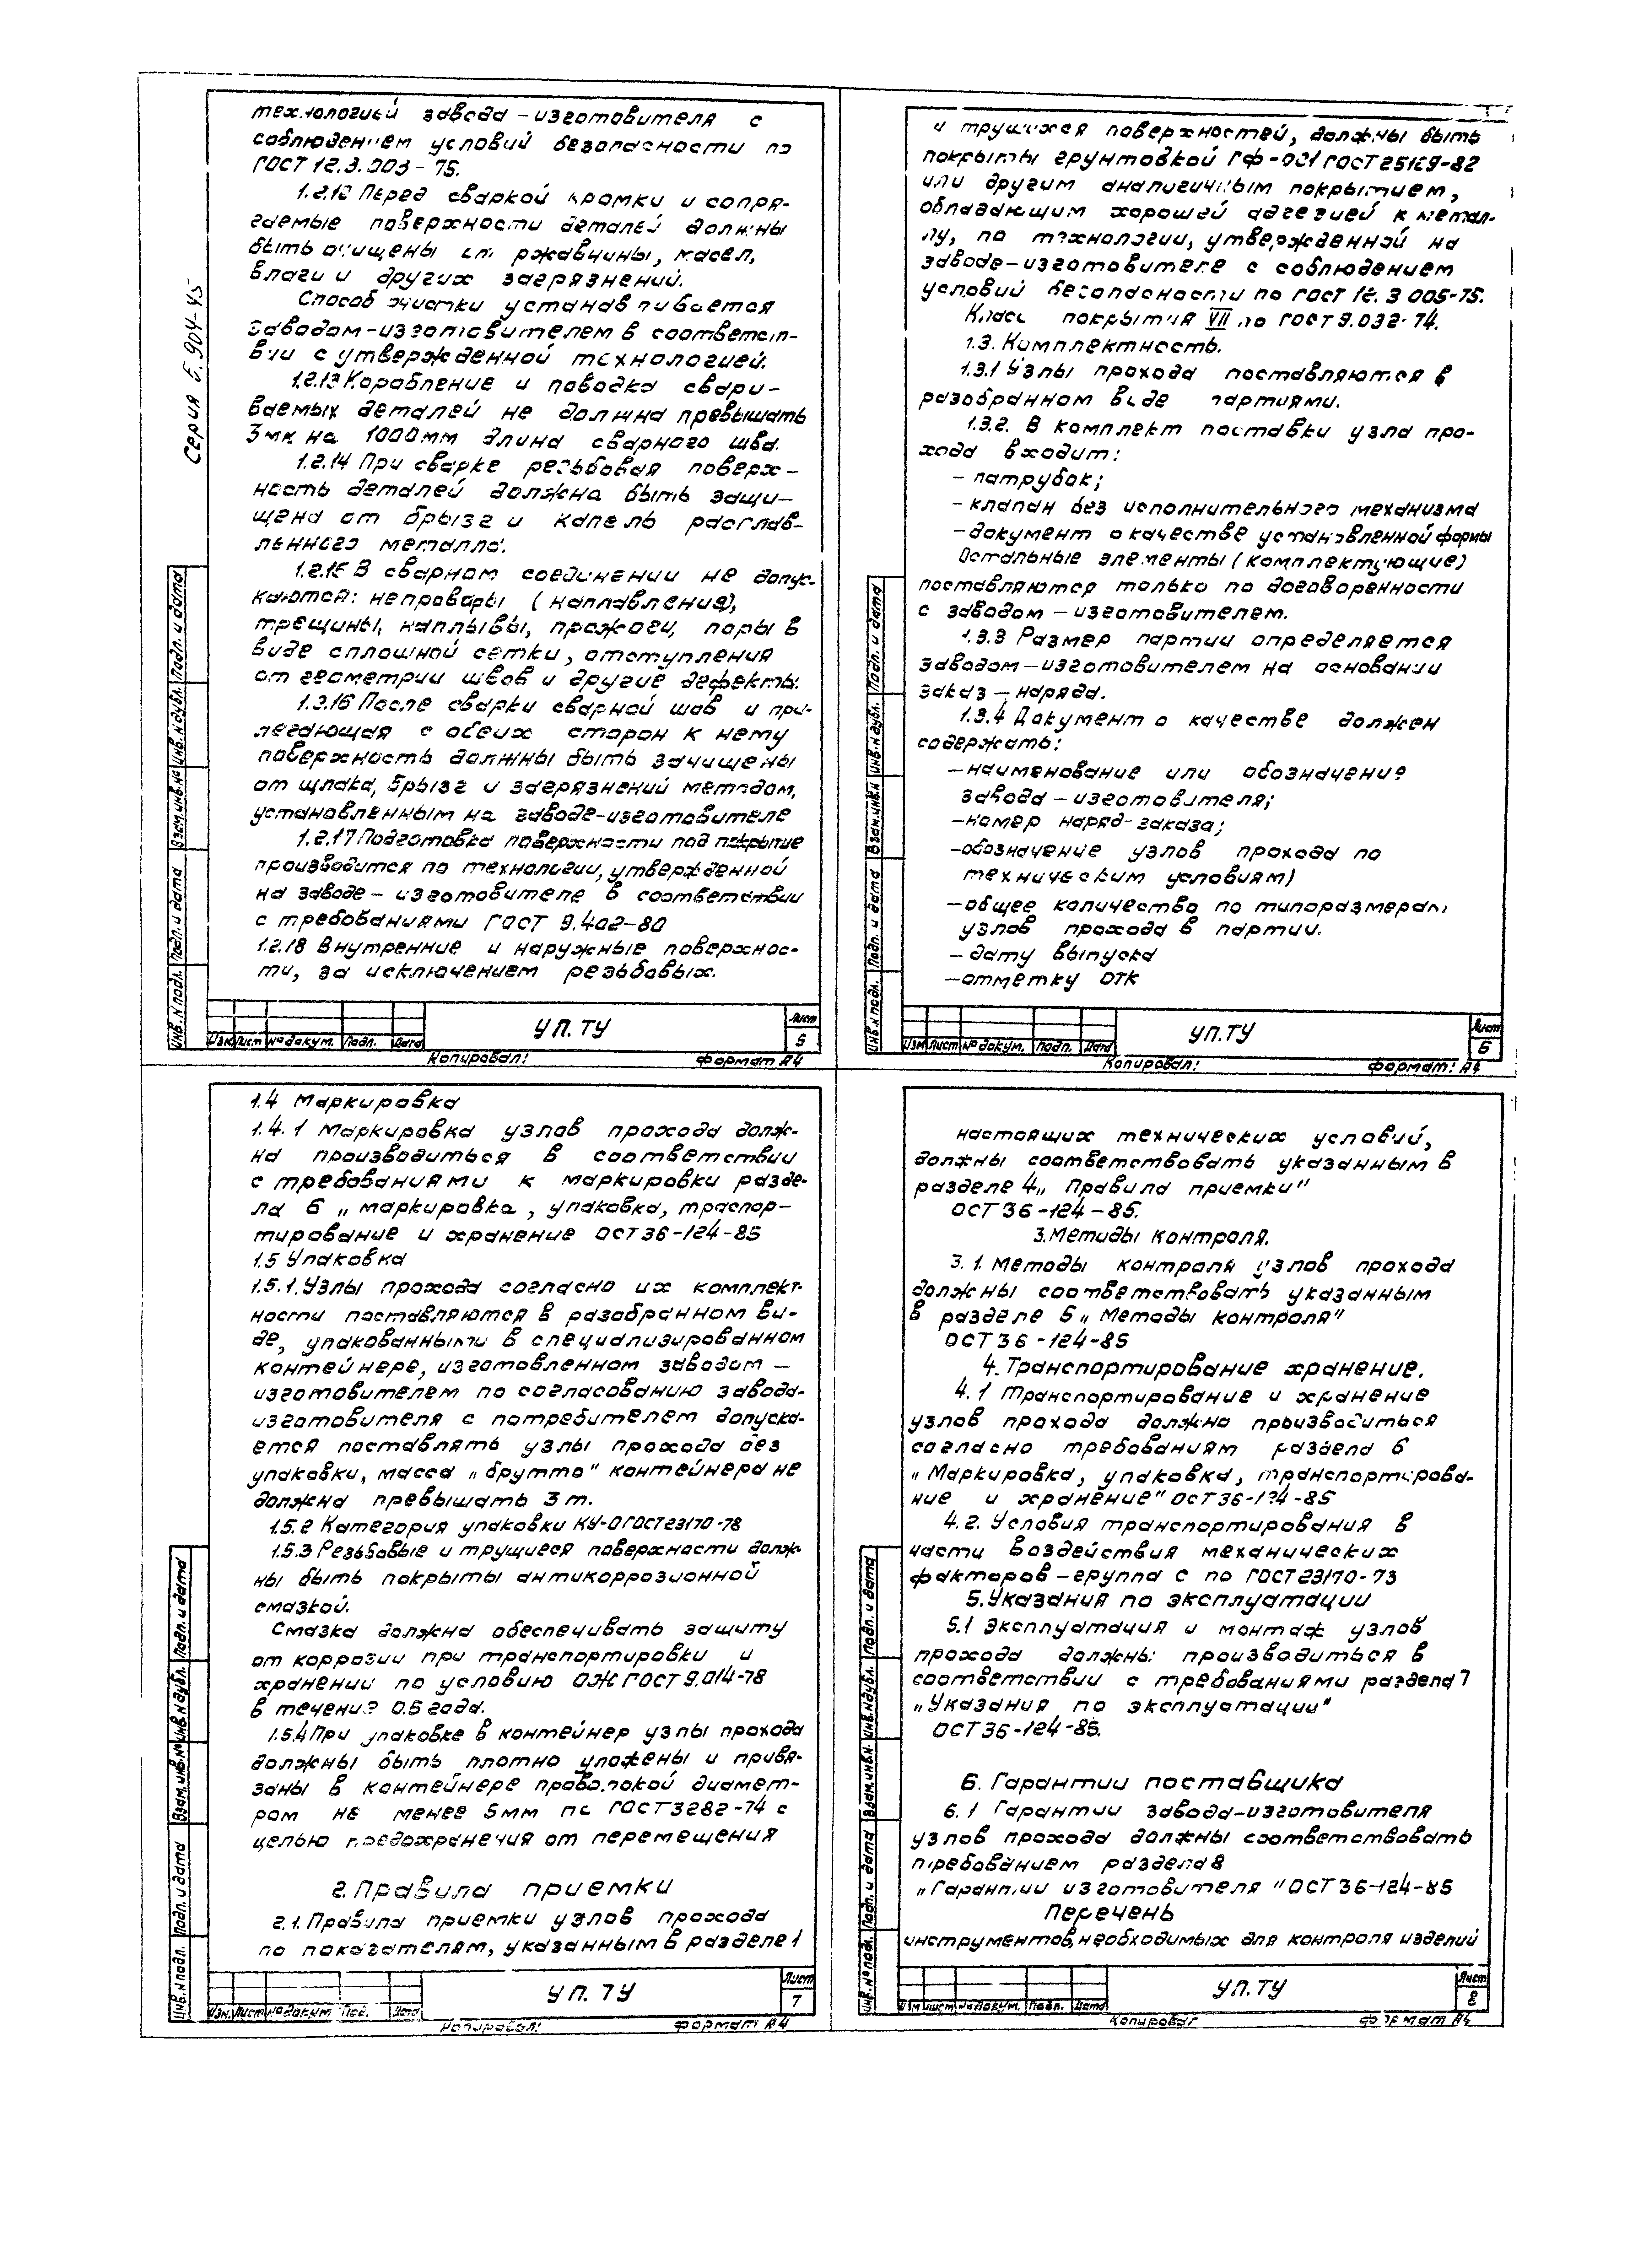 Серия 5.904-45
технологией завода-изготовителя с
соблюдением условий безопасности по
ГОСТ 12.3.003-75.
1.2.12 Перед сваркой кромки и сопря-
гаемые поверхности деталей должны
быть очищены от ржавчины, масел,
влаги и других загрязнений.
Способ очистки устанавливается
заводом-изготовителем в соответст-
вии с утвержденной технологией.
1.2.13 Коробление и поводка свари-
ваемых деталей не должна превышать
3мм на 1000мм длина сварного шва.
1.2.14 При сварке резьбовая поверх-
ность деталей должна быть защи-
щена от брызг и капель расплав-
ленного металла.
1.2.15 В сварном соединении не допус-
каются: непровары (наплавления),
трещины, наплывы, прожоги, поры в
виде сплошной сетки, отступления
от геометрии швов и другие дефекты.
1.2.16 После сварки сварной шов и при-
легающая с обеих сторон к нему
поверхность должны быть зачищены
от шлака, брызг и загрязнений методом,
установленным на заводе-изготовителе
1.2.17 Подготовка поверхности под покрытие
производится по технологии, утвержденной
на заводе-изготовителе в соответствии
с требованиями ГОСТ 9.402-80
1.2.18 Внутренние и наружные поверхнос-
ти, за исключением резьбовых.
УП.ТУ
Лист
5
Изм Лист № докум. Подп. Дата
Копировал:
Формат А4
Инв. N подл. Подп. и дата Взам. инв. № Инв. N дубл. Подп. и дата
и трущихся поверхностей, должны быть
покрыты грунтовкой ГФ-021 ГОСТ 25129-82
или другим аналогичным покрытием,
обладающим хорошей адгезией к метал-
лу, по технологии, утвержденной на
заводе-изготовителе с соблюдением
условий безопасности по ГОСТ 12.3 005-75.
Класс покрытия VII по ГОСТ 9.032-74.
1.3. Комплектность.
1.3.1 Узлы прохода поставляются в
разобранном виде партиями.
1.3.2. В комплект поставки узла про-
хода входит:
- патрубок;
- клапан без исполнительного механизма
- документ о качестве установленной формы
Остальные элементы (комплектующие)
поставляются только по договоренности
с заводом-изготовителем.
1.3.3 Размер партии определяется
заводом-изготовителем на основании
заказ-наряда.
1.3.4 Документ о качестве должен
содержать:
- наименование или обозначение
завода-изготовителя;
- номер наряд-заказа;
- обозначение узлов прохода по
техническим условиям)
- общее количество по типоразмерам
узлов прохода в партии.
- дату выпуска
- отметку ОТК
УП.ТУ
Лист
6
Изм Лист № докум. Подп. Дата
Копировал:
Формат: А4
Инв. N подл. Подп. и дата Взам. инв. N Инв. N дубл. Подп. и дата
1.4 Маркировка
1.4.1 Маркировка узлов прохода долж-
на производиться в соответствии
с требованиями к маркировки разде-
ла 6 „маркировка, упаковка, траспор-
тирование и хранение ОСТ 36-124-85
1.5 Упаковка
1.5.1. Узлы прохода согласно их комплект-
ности поставляются в разобранном ви-
де, упакованными в специализированном
контейнере, изготовленном заводом-
изготовителем по согласованию завода-
изготовителя с потребителем допуска-
ется поставлять узлы прохода без
упаковки, масса „брутто" контейнера не
должна превышать 3т.
1.5.2 Категория упаковки КУ-0 ГОСТ 23170-78
1.5.3 Резьбовые и трущиеся поверхности долж-
ны быть покрыты антикоррозионной
смазкой.
Смазка должна обеспечивать защиту
от коррозии при транспортировки и
хранении по условию ОЖ ГОСТ 9.014-78
в течении 0.5 года.
1.5.4 При упаковке в контейнер узлы прохода
должны быть плотно уложены и привя-
заны в контейнере проволокой диамет-
ром не менее 5мм по ГОСТ 3282-74 с
целью предохранения от перемещения
2. Правила приемки
2.1. Правила приемки узлов прохода
по показателям, указанным в разделе 1
УП. ТУ
Лист
7
Изм. Лист № докум. Под. Дата
Копировал:
Формат А4
Инв. N подл. Подп. и дата Взам. инв. № Инв. N дубл. Подп. и дата
настоящих технических условий,
должны соответствовать указанным в
разделе 4 „ Правила приемки"
ОСТ 36-124-85.
3. Методы контроля.
3.1. Методы контроля узлов прохода
должны соответствовать указанным
в разделе 5 „ Методы контроля"
ОСТ 36-124-85
4. Транспортирование хранение.
4.1 Транспортирование и хранение
узлов прохода должно производиться
согласно требованиям раздела 6
„ Маркировка, упаковка, транспортирова-
ние и хранение" ОСТ 36-124-85
4.2. Условия транспортирования в
части воздействия механических
факторов - группа с по ГОСТ 23170-73
5. Указания по эксплуатации
5.1 Эксплуатация и монтаж узлов
прохода должны производиться в
соответствии с требованиями раздела 7
„ Указания по эксплуатации"
ОСТ 36-124-85.
6. Гарантии поставщика
6.1 Гарантии завода-изготовителя
узлов прохода должны соответствовать
требованием раздела 8
„ Гарантии изготовителя " ОСТ 36-124-85
перечень
инструментов, необходимых для контроля изделий
УП.ТУ
Лист
8
Изм Лист № докум. Подп. Дата
Копировал
Формат А4
Инв. № подл. Подп. и дата Взам. инв. N. Инв. N дубл. Подп. и дата